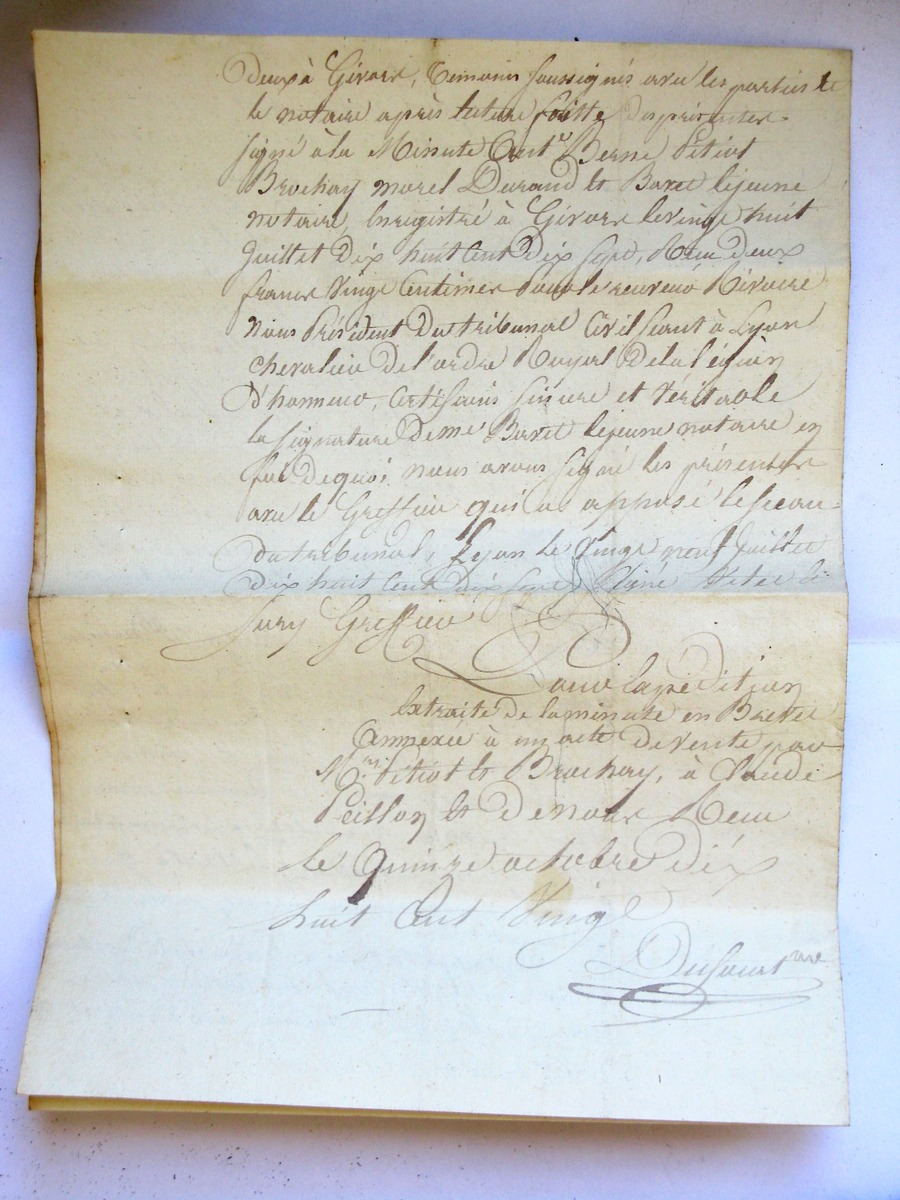 deux à Givors, temoins soussignés avec les parties et
le notaire après lecture faitte des présentes
signé à la Minute Berne Petiot
Brochay morel Durand et Baret lejeune
notaire, Enregistré à Givors le vingt huit
Juillet dix huit cent dix sept, Reçu deux
francs vingt centimes pour le receveur
nous Président du tribunal Civil séant à Lyon
chevalier de l'ordre Royal de la légion
d'honneur, certifions sincère et véritable
la signature de me Baret lejeune notaire en
foi de quoi nous avons signé les présentes
avec le Greffier qui a apposé le sceau
du tribunal, Lyon le vingt neuf Juillet
dix huit cent dix sept signé
Greffier
Pour Expédition
Extraite de la minute en Brevet
Annexée à un acte de vente par
Mrs Petiot et Brochay, à Claude
Peillon et de nous Reçu
le quinze octobre dix
huit cent vingt